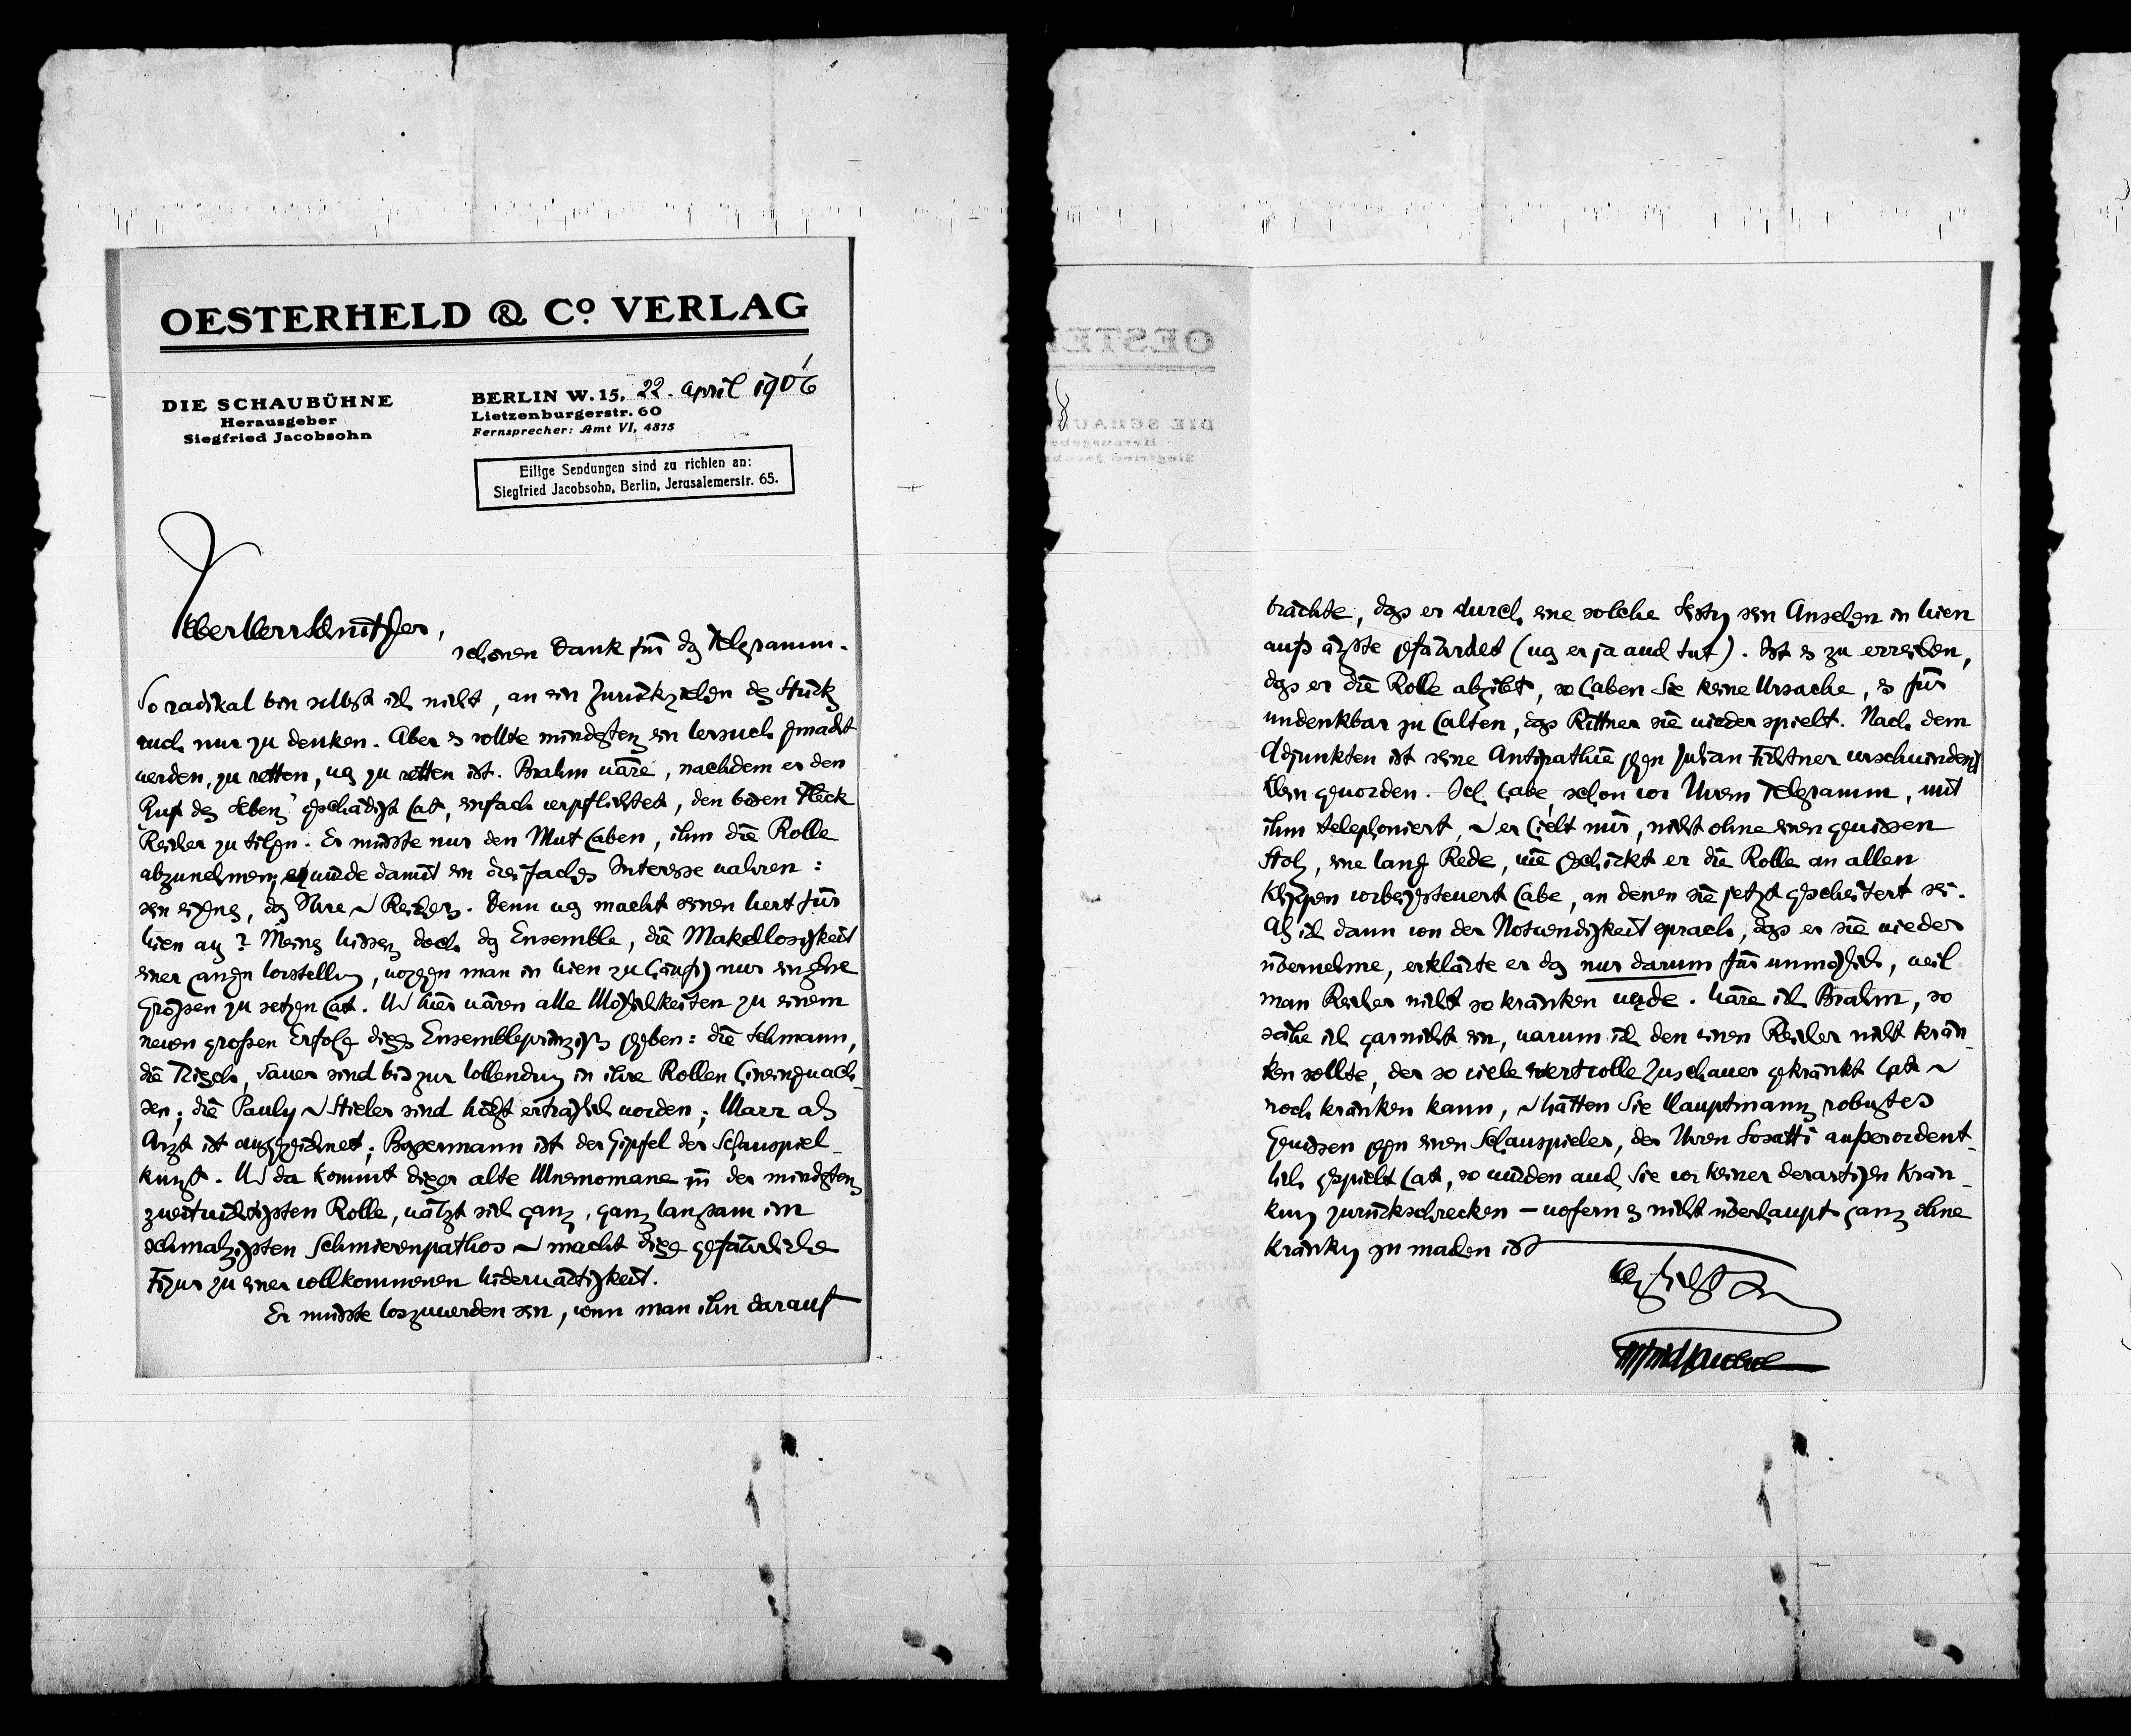 OESTERHELD & Co. VERLAG
DIE SCHAUBÜHNE
Herausgeber
Siegfried Jacobsohn
BERLIN W. 15, 22. April 1906
Lietzenburgerstr. 60
Fernsprecher: Amt VI, 4875
Eilige Sendungen sind zu richten an:
Siegfried Jacobsohn, Berlin, Jerusalemerstr. 65.
Lieber Herr Schnitzler,
schönen Dank für das Telegramm.
So radikal bin selbst ich nicht, an ein Zurückziehen des Stücks
auch nur zu denken. Aber es sollte mindestens ein Versuch gemacht
werden, zu retten, was zu retten ist. Brahm wäre, nachdem er den
„Ruf des Lebens" geschädigt hat, einfach verpflichtet, den bösen Fleck
Reicher zu tilgen. Er müsste nur den Mut haben, ihm die Rolle
abzunehmen; er würde damit ein dreifaches Interesse wahren:
sein eignes, das Ihre u Reichers. Denn was macht seinen Wert für
Wien aus? Meines Wissens doch das Ensemble, die Makellosigkeit
einer ganzen Vorstellung, wogegen man in Wien zu häufig nur einzelne
Größen zu setzen hat. Und hier wären alle Möglichkeiten zu einem
neuen grossen Erfolg dieses Ensembleprinzips gegeben: die Lehmann,
die Triesch, Sauer sind bis zur Vollendung in ihre Rollen hineingewach-
sen; die Pauly u Stieler sind höchst erträglich worden; Marr als
Arzt ist ausgezeichnet; Bassermann ist der Gipfel der Schauspiel-
kunst. Und da kommt dieser alte Mnemomane in der mindestens
zweitwichtigsten Rolle, wälzt sich ganz, ganz langsam im
schmalzigsten Schmierenpathos u macht diese gefährliche
Figur zu einer vollkommenen Widerwärtigkeit.
Er müsste loszuwerden sein, wenn man ihn darauf
brächte, dass er durch eine solche Leistung sein Ansehen in Wien
aufs ärgste gefährdet (was er ja auch tut). Ist es zu erreichen,
dass er die Rolle abgibt, so haben Sie keine Ursache, es für
undenkbar zu halten, dass Rittner sie wieder spielt. Nach dem
Adjunkten ist seine Antipathie gegen Julian Fichtner verschwindend
klein geworden. Ich habe, schon vor Ihrem Telegramm, mit
ihm telephoniert, u er hielt mir, nicht ohne einen gewissen
Stolz, eine lange Rede, wie geschickt er die Rolle an allen
Klippen vorbeigesteuert habe, an denen sie jetzt gescheitert sei.
Als ich dann von der Notwendigkeit sprach, dass er sie wieder
übernehme, erklärte er das nur darum für unmöglich, weil
man Reicher nicht so kränken werde. Wäre ich Brahm, so
sähe ich garnicht ein, warum ich den einen Reicher nicht krän-
ken sollte, der so viele wertvolle Zuschauer gekränkt hat u
noch kränken kann, u hätten Sie Hauptmanns robustes
Gewissen gegen einen Schauspieler, der Ihren Losatti außerordent-
lich gespielt hat, so würden auch Sie vor keiner derartigen Krän-
kung zurückschrecken – wofern es nicht überhaupt ganz ohne
Kränkung zu machen ist
Siegfried Jacobsohn